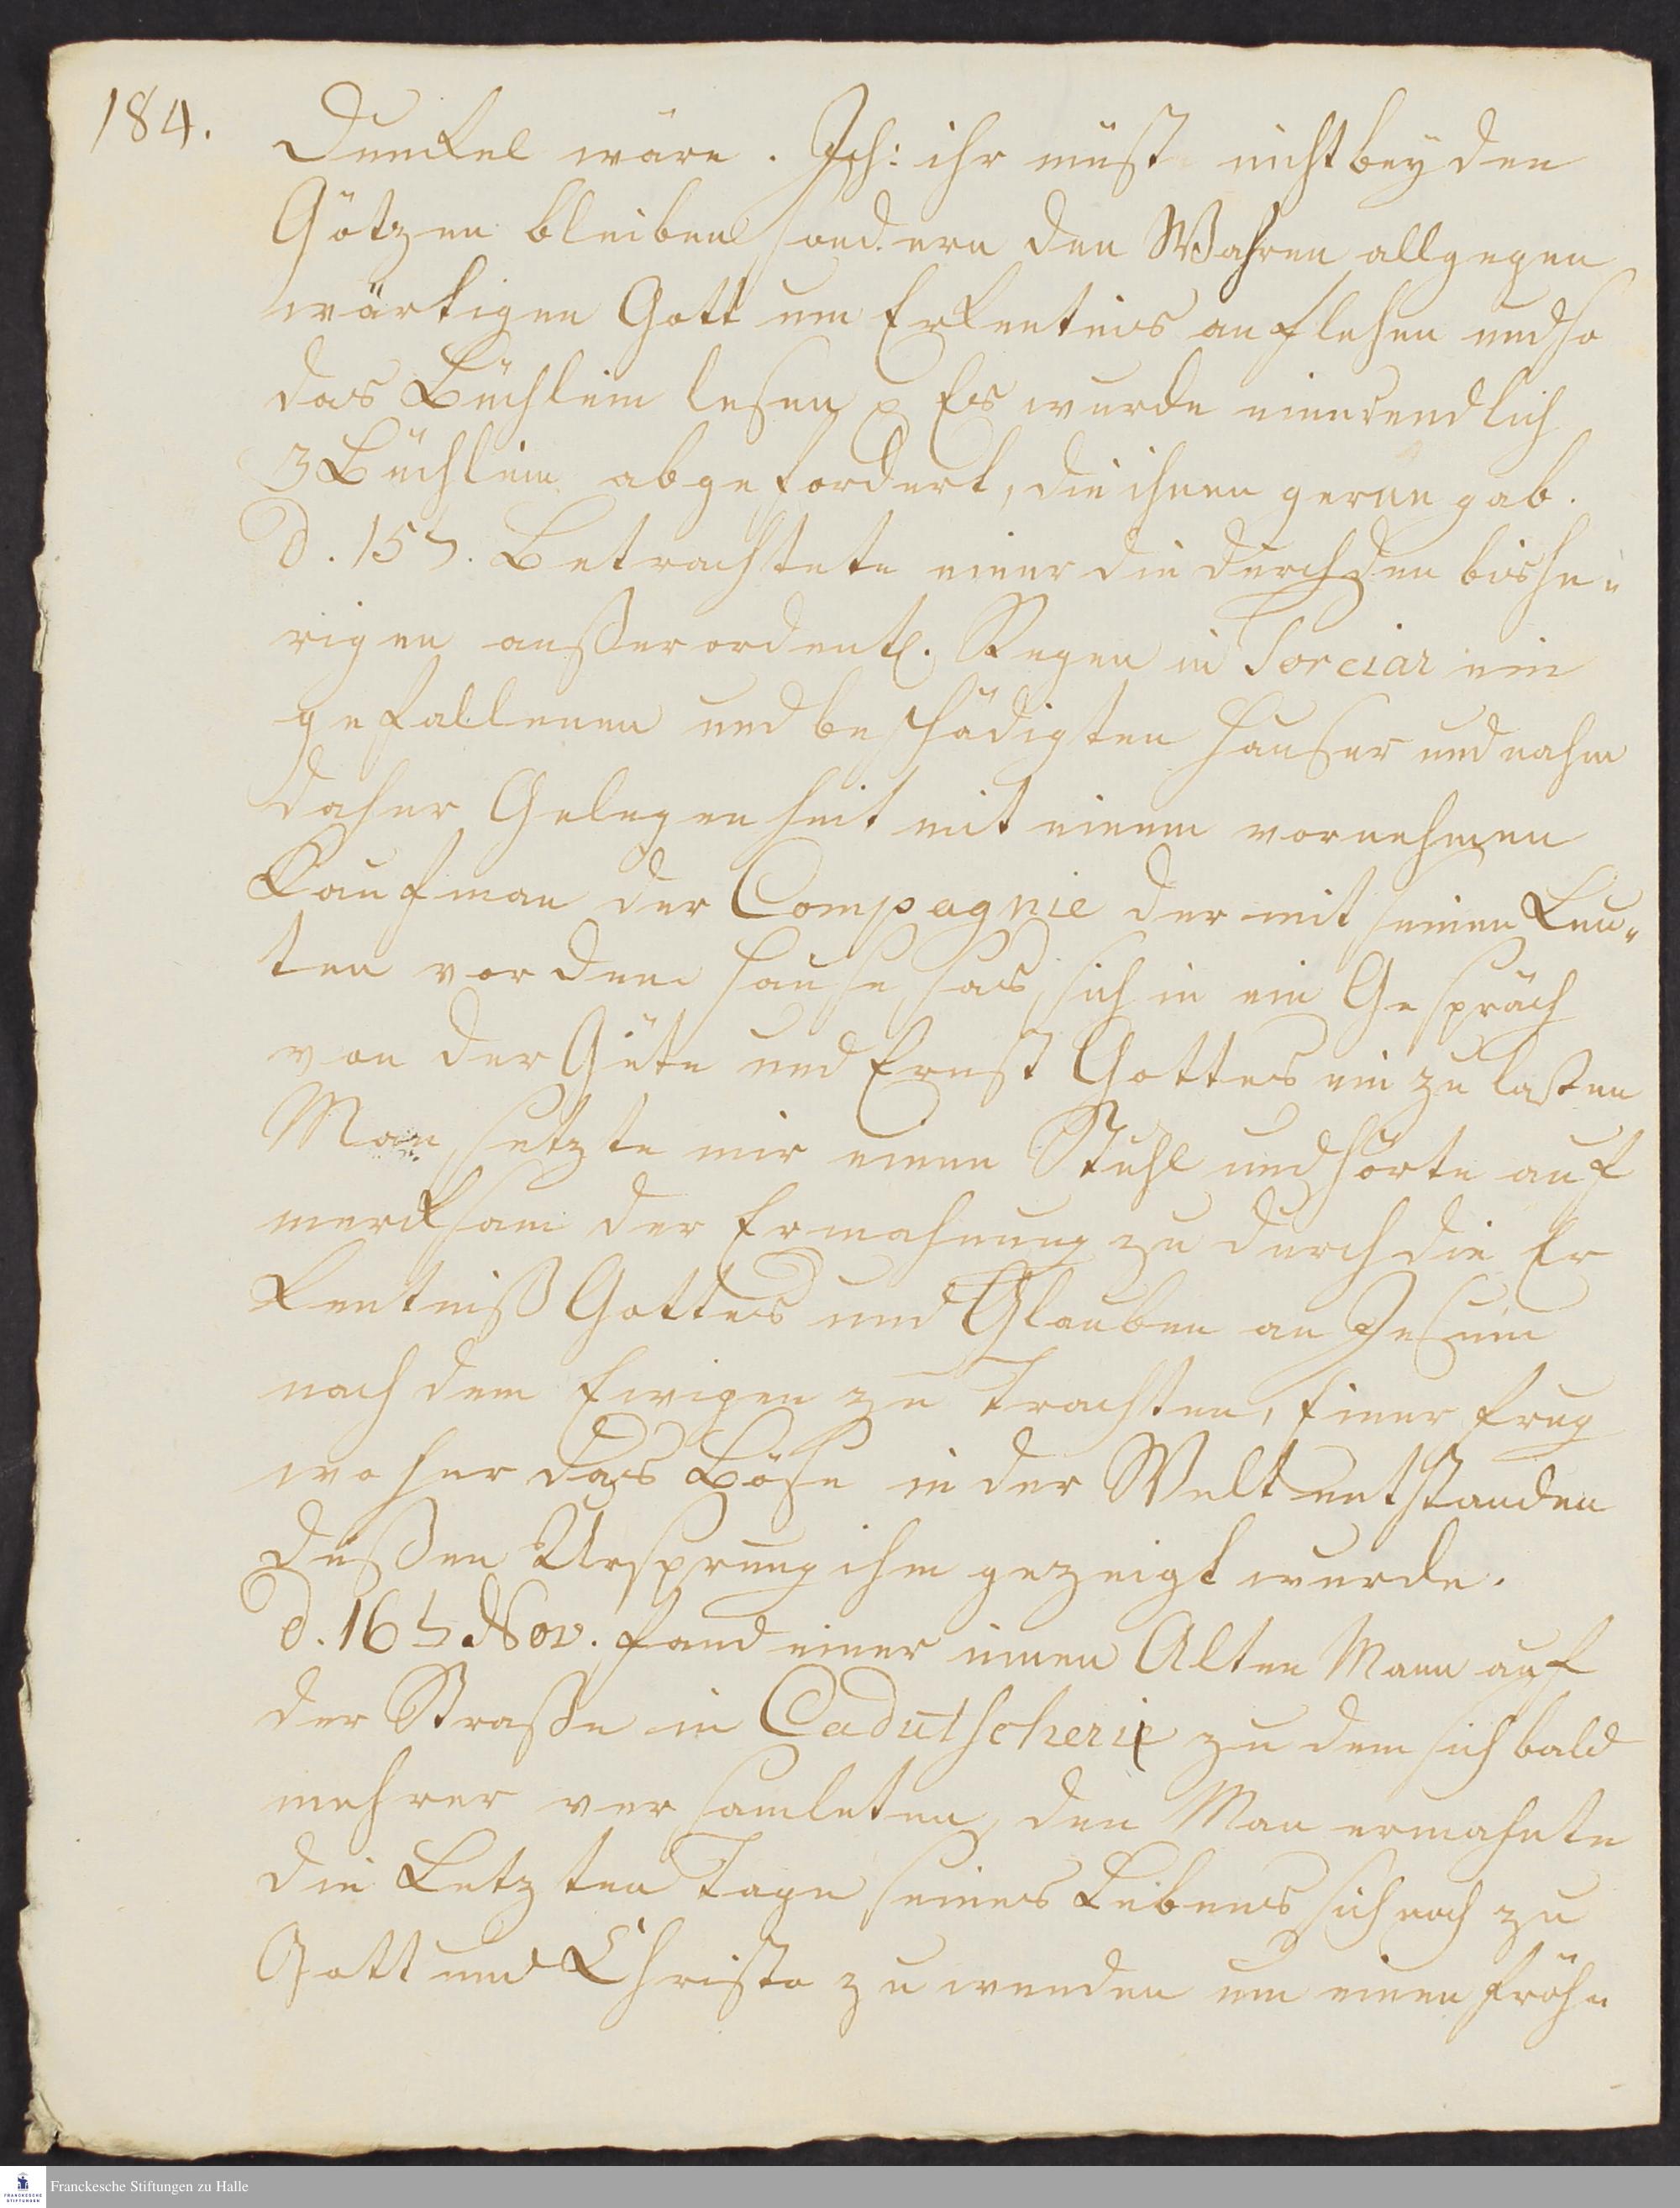 184.
Dunckel wäre. Ich: ihr müst nicht bey den
Götzen bleiben sondern den Wahren allgegen
wärtigen Gott um Erkentnis anflehen und so
das Büchlein lesen p Es wurde einer endlich
3 Büchlein abgefordert, die ihnen gerne gab.
d. 15t. Betrachtete einer die durch den bishe-
rigen außerordentl. Regen in Poreiar ein
gefallenen und beschädigten Häuser und nahm
daher Gelegenheit mit einem vornehmen
Kaufman der Compagnie der mit seinen Leu-
ten vor dem Hause sas, sich in ein Gespräch
von der Güte und Ernst Gottes ein zu laßen
Man setzte mir einen Stuhl und hörte auf
mercksam der Ermahnung zu durch die Er
kentniß Gottes und Glauben an Jesum
nach dem Ewigen zu trachten, Einer frug
woher das Böse in der Welt entstanden
deßen Ursprung ihm gezeigt wurde.
d. 16t Nov. fand einer einen Alten Mann auf
der Straße in Cadutscheri zu dem sich bald
mehrer versamleten, den Man ermahnte
die Letzten Tage seines Lebens sich noch zu
Gott und Christo zu wenden um einen fröh-
Franckesche Stiftungen zu Halle
FRANCKESCHE
STIFTUNGEN